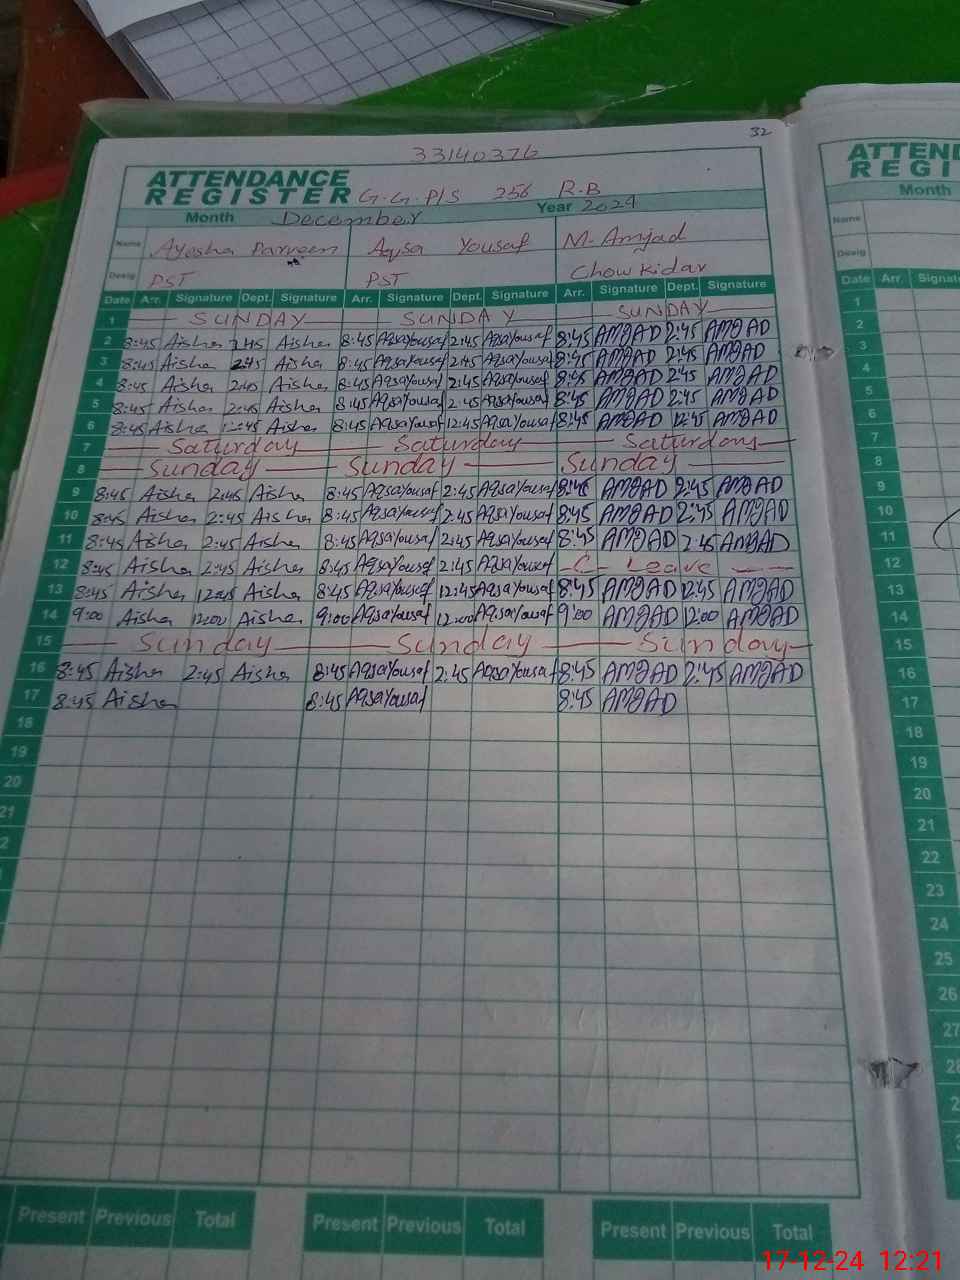 32
33140376
ATTENDANCE
REGISTER G.G.P/S 256 R.B
Month December Year 2024
Name Ayesha Parveen Aqsa Yousaf M. Amjad
Desig PST PST Chowkidar
Date Arr. Signature Dept. Signature Arr. Signature Dept. Signature Arr. Signature Dept. Signature
1 SUNDAY SUNDAY SUNDAY
2 8:45 Aisha 2:45 Aisha 8:45 AqsaYousaf 2:45 AqsaYousaf 8:45 AMJAD 2:45 AMJAD
3 8:45 Aisha 2:45 Aisha 8:45 AqsaYousaf 2:45 AqsaYousaf 8:45 AMJAD 2:45 AMJAD
4 8:45 Aisha 2:45 Aisha 8:45 AqsaYousaf 2:45 AqsaYousaf 8:45 AMJAD 2:45 AMJAD
5 8:45 Aisha 2:45 Aisha 8:45 AqsaYousaf 2:45 AqsaYousaf 8:45 AMJAD 2:45 AMJAD
6 8:45 Aisha 12:45 Aisha 8:45 AqsaYousaf 12:45 AqsaYousaf 8:45 AMJAD 12:45 AMJAD
7 Saturday Saturday Saturday
8 Sunday Sunday Sunday
9 8:45 Aisha 2:45 Aisha 8:45 AqsaYousaf 2:45 AqsaYousaf 8:45 AMJAD 2:45 AMJAD
10 8:45 Aisha 2:45 Aisha 8:45 AqsaYousaf 2:45 AqsaYousaf 8:45 AMJAD 2:45 AMJAD
11 8:45 Aisha 2:45 Aisha 8:45 AqsaYousaf 2:45 AqsaYousaf 8:45 AMJAD 2:45 AMJAD
12 8:45 Aisha 2:45 Aisha 8:45 AqsaYousaf 2:45 AqsaYousaf C Leave
13 8:45 Aisha 12:45 Aisha 8:45 AqsaYousaf 12:45 AqsaYousaf 8:45 AMJAD 12:45 AMJAD
14 9:00 Aisha 12:00 Aisha 9:00 AqsaYousaf 12:00 AqsaYousaf 9:00 AMJAD 12:00 AMJAD
15 Sunday Sunday Sunday
16 8:45 Aisha 2:45 Aisha 8:45 AqsaYousaf 2:45 AqsaYousaf 8:45 AMJAD 2:45 AMJAD
17 8:45 Aisha 8:45 AqsaYousaf 8:45 AMJAD
18
19
20
21
Present Previous Total Present Previous Total Present Previous Total
ATTEND
REGI
Month
Name
Desig
Date Arr. Signat
1
2
3
4
5
6
7
8
9
10
11
12
13
14
15
16
17
18
19
20
21
22
23
24
25
26
27
17-12-24 12:21